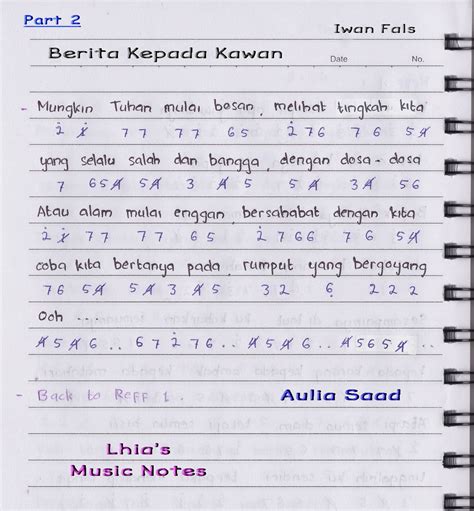 Part 2
Iwan Fals
Berita Kepada Kawan
Date No.
- Mungkin Tuhan mulai bosan, melihat tingkah kita
2̇ 1̸̇ 7 7 7 7 6 5 2̇ 7 6 7 6 5 4̸
yang selalu salah dan bangga, dengan dosa-dosa
7 6 5 4̸ 5 4̸ 3 4̸ 5 5 4̸ 3 4̸ 5 6
Atau alam mulai enggan, bersahabat dengan kita
2̇ 1̸̇ 7 7 7 7 6 5 2̇ 7 6 6 7 6 5 4̸
coba kita bertanya pada, rumput yang bergoyang
7 6 5 4̸ 5 4̸ 3 4̸ 5 3 2 6̣ 2 2 2
Ooh ...
4̸ 5 4̸ 6 .. 6 7 2̇ 7 6 .. 4̸ 5 4̸ 6 .. 4̸ 5 6 5 4̸
- Back to Reff 1.
Aulia Saad
Lhia's
Music Notes